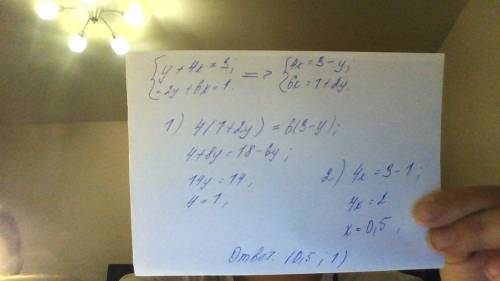 {y + 4x = 3; => {4x = 3 - y;
{-2y + 6x = 1. {6x = 1 + 2y.
1) 4(1+2y) = 6(3-y);
4 + 8y = 18 - 6y;
14y = 14,
y = 1,
2) 4x = 3 - 1;
4x = 2
x = 0,5,
Ответ. (0,5 ; 1)